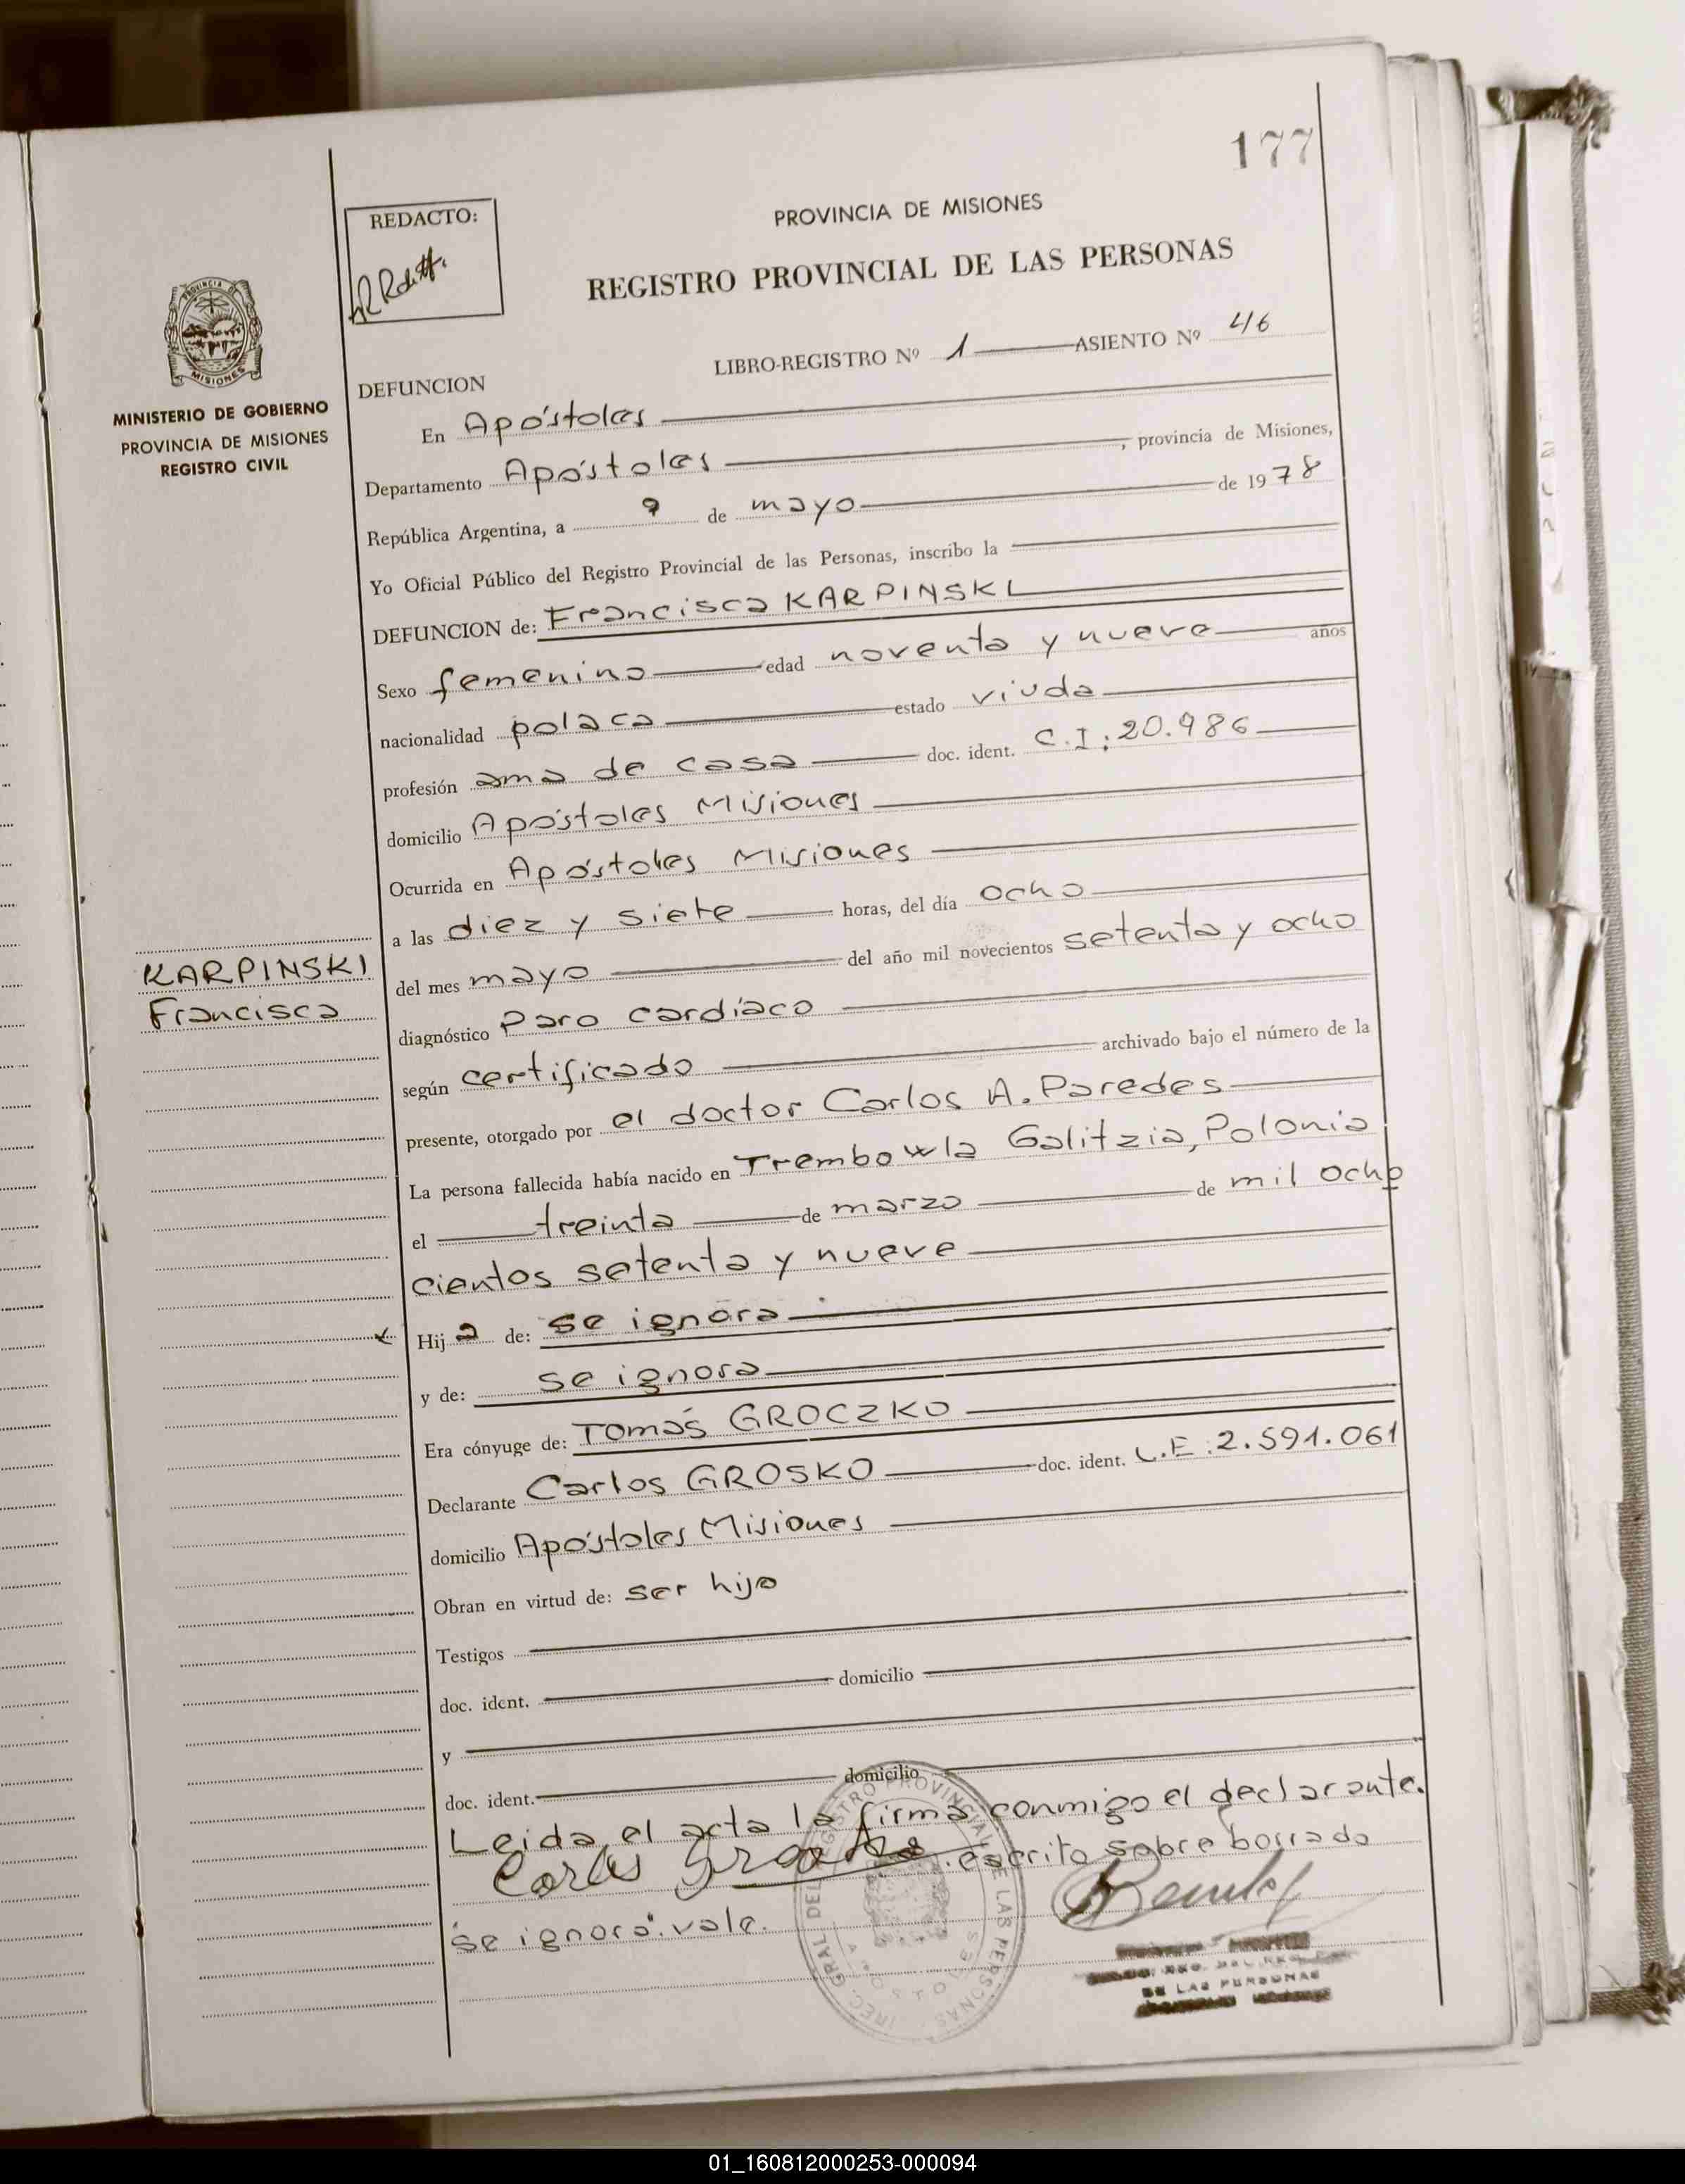 177
REDACTO:
PROVINCIA DE MISIONES
REGISTRO PROVINCIAL DE LAS PERSONAS
PROVINCIA DE
MISIONES
MINISTERIO DE GOBIERNO
PROVINCIA DE MISIONES
REGISTRO CIVIL
LIBRO-REGISTRO Nº 1 ASIENTO Nº 46
DEFUNCION
En Apóstoles
Departamento Apóstoles, provincia de Misiones,
República Argentina, a 9 de mayo de 1978
Yo Oficial Público del Registro Provincial de las Personas, inscribo la
DEFUNCION de: Francisca KARPINSKI
Sexo femenino edad noventa y nueve años
nacionalidad polaca estado viuda
profesión ama de casa doc. ident. C.I: 20.986
domicilio Apóstoles Misiones
Ocurrida en Apóstoles Misiones
a las diez y siete horas, del día ocho
del mes mayo del año mil novecientos setenta y ocho
KARPINSKI
Francisca
diagnóstico Paro cardíaco
según certificado archivado bajo el número de la
presente, otorgado por el doctor Carlos A. Paredes
La persona fallecida había nacido en Trembowla Galitzia, Polonia
el treinta de marzo de mil ocho
cientos setenta y nueve
Hija de: se ignora
y de: se ignora
Era cónyuge de: Tomás GROCZKO
Declarante Carlos GROSKO doc. ident. L.E: 2.591.061
domicilio Apóstoles Misiones
Obran en virtud de: ser hijo
Testigos
doc. ident. domicilio
y
doc. ident. domicilio
Leida el acta la firma conmigo el declarante.
Carlos
escrito sobre borrado
"se ignora". vale.
REGISTRO PROVINCIAL DE LAS PERSONAS
APOSTOLES
DE LAS PERSONAS
01_160812000253-000094